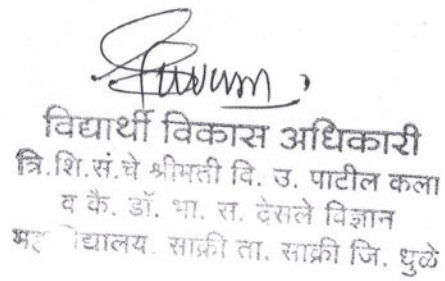 विद्यार्थी विकास अधिकारी
त्रि.शि.सं.चे श्रीमती वि. उ. पाटील कला
व कै. डॉ. भा. स. देसले विज्ञान
साक्री ता. साक्री जि. धुळे